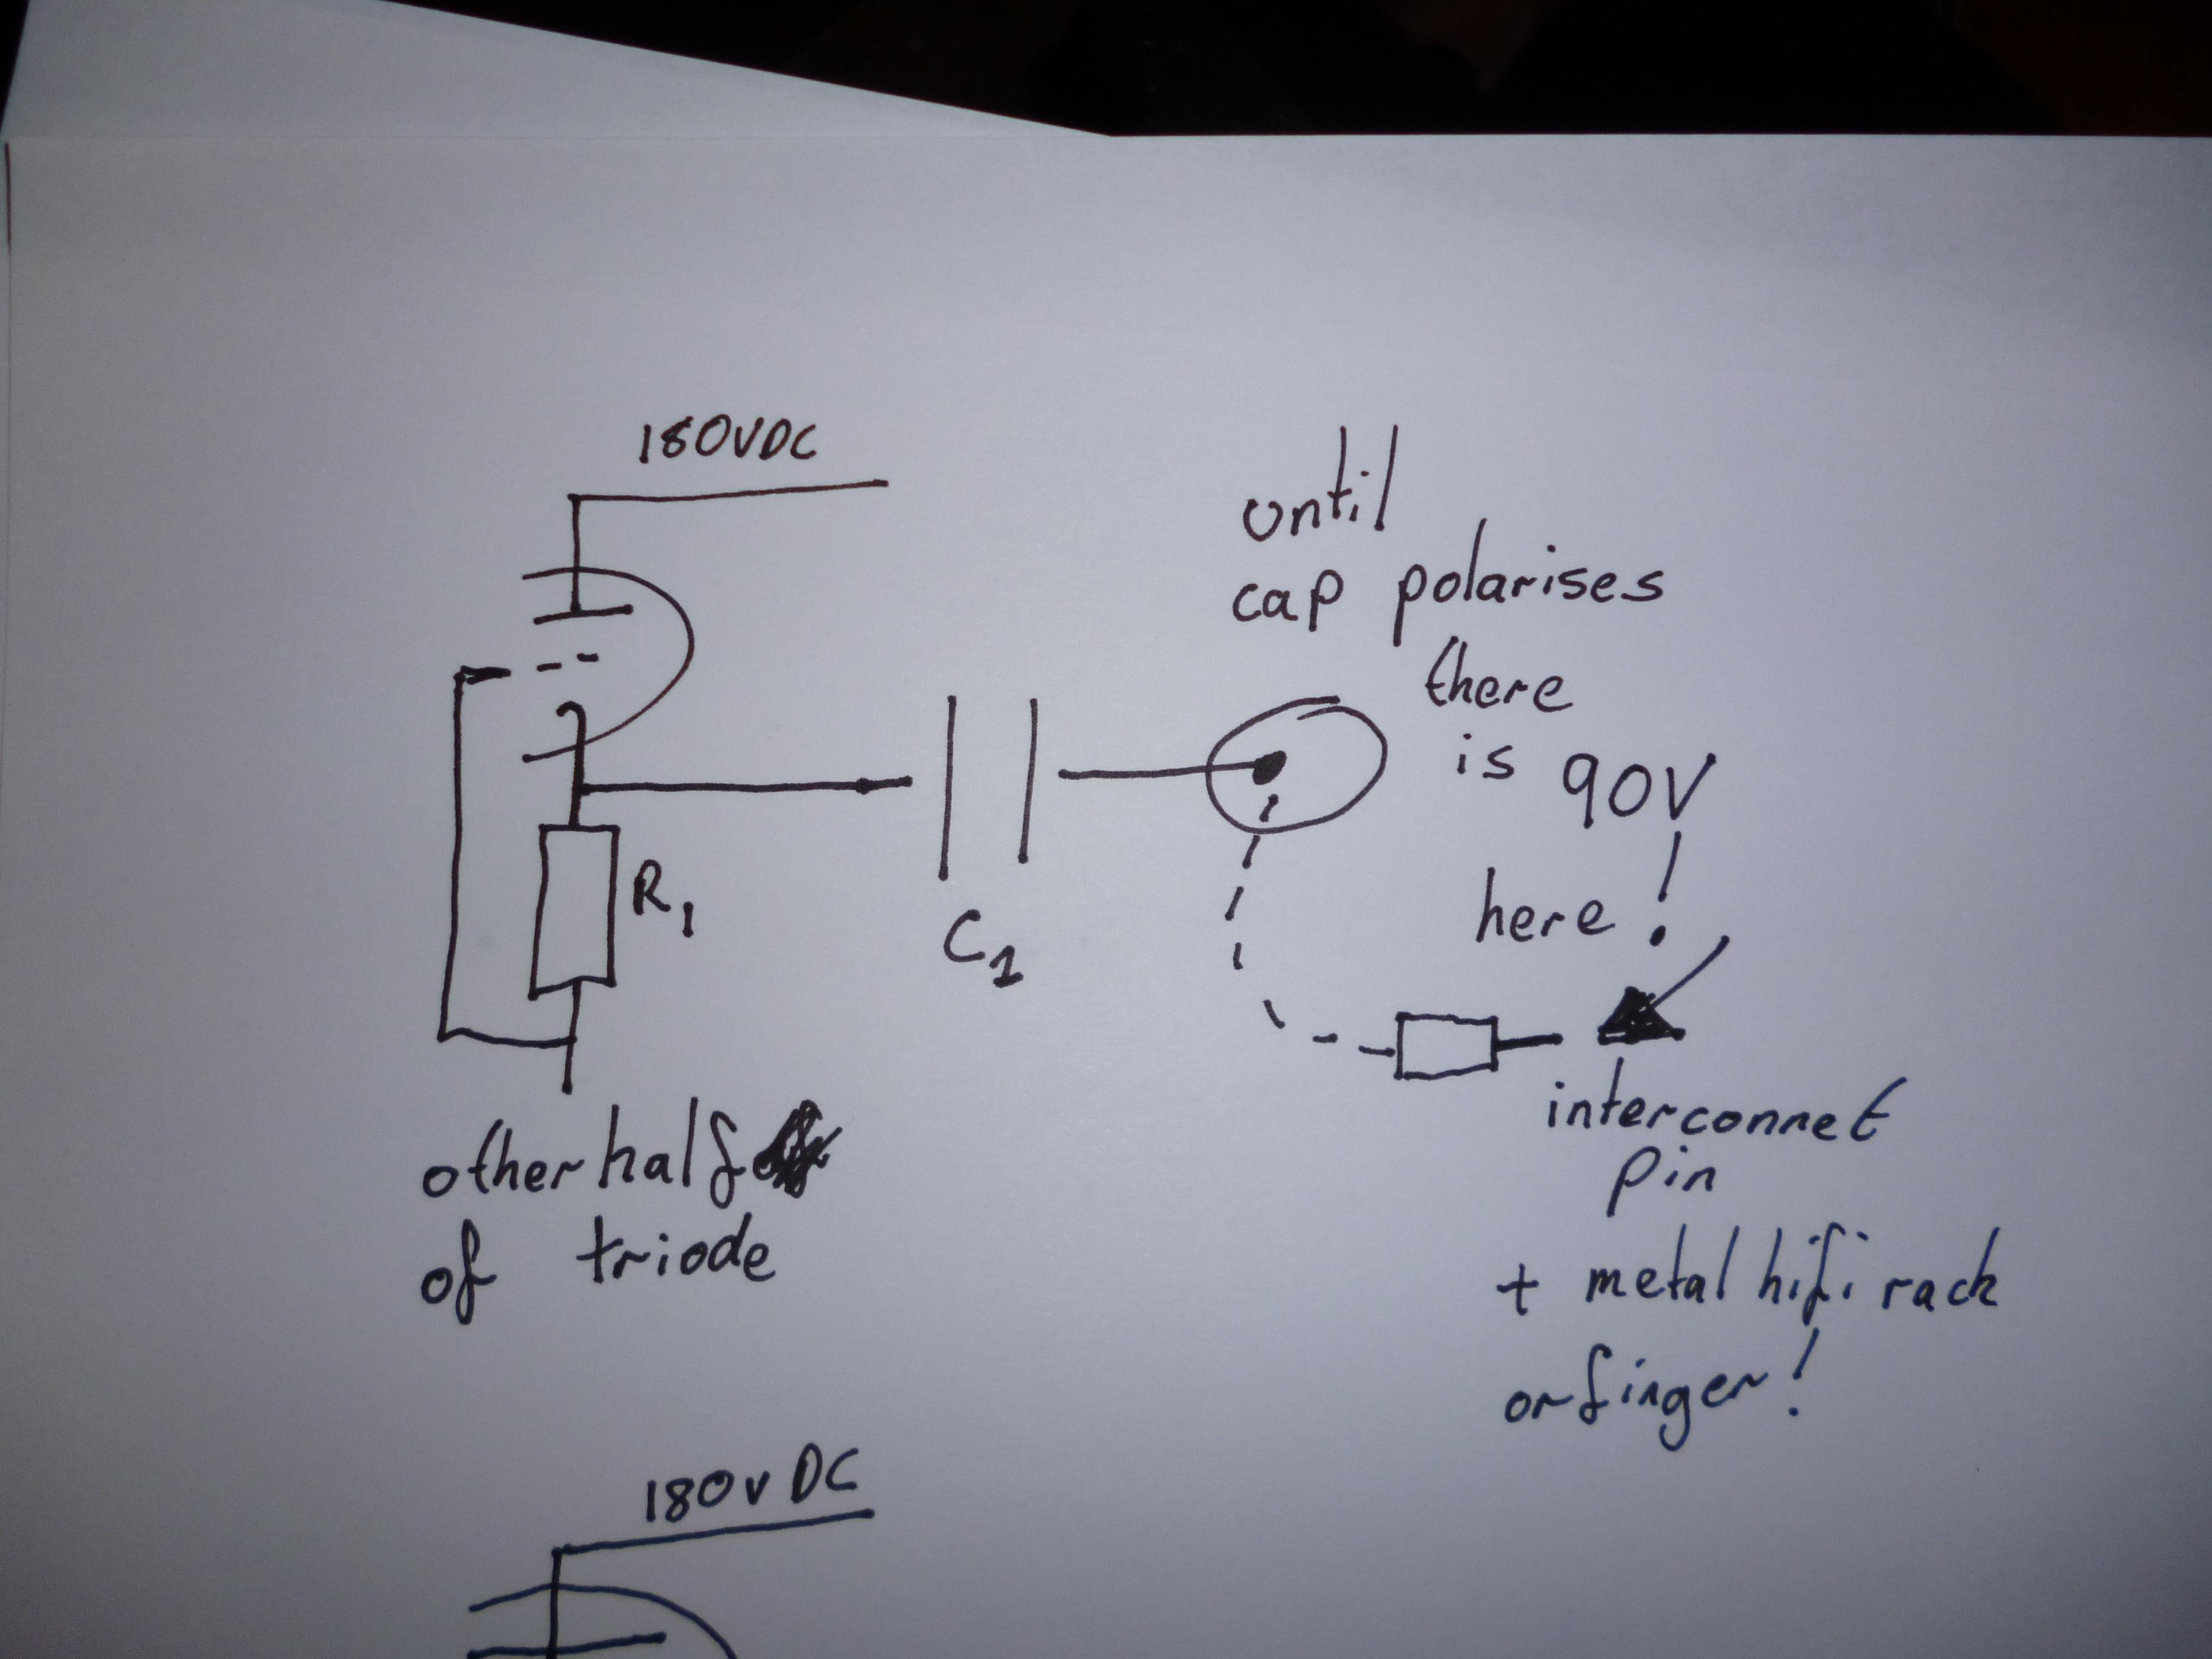 180VDC
until
cap polarises
there
is 90V
here!
R1
C1
interconnet
pin
+ metal hifi rack
or finger!
other half
of triode
180v DC